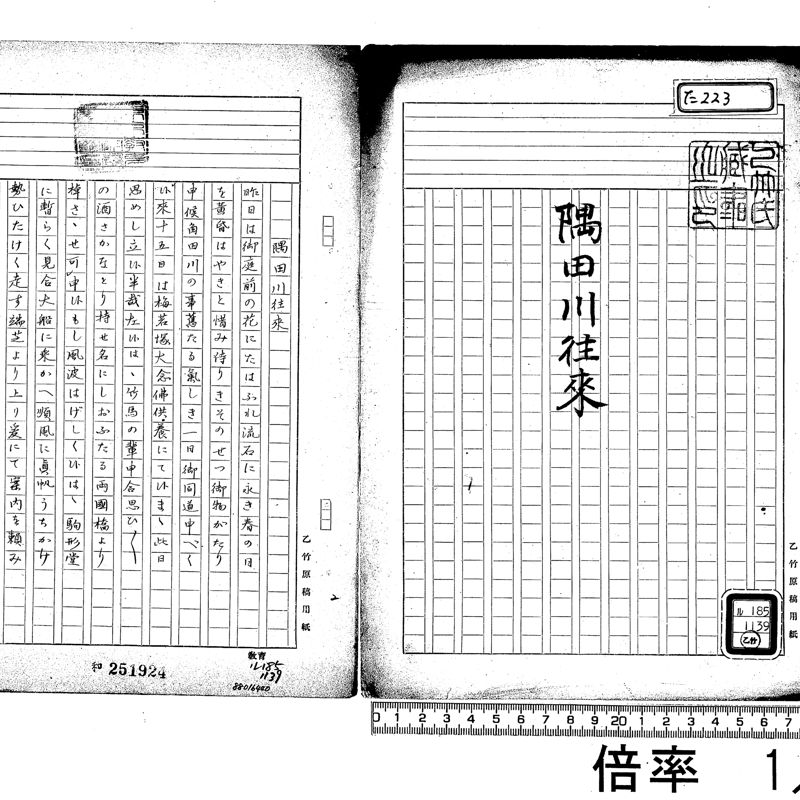 た223
乙竹氏
蔵書
之印
隅田川往來
乙竹原稿用紙
ル185
1139
(乙竹)
隅田川往来
昨日は御庭前の花にたはふれ流石に永き春の日
を黄昏はやきと惜み侍りきそのせつ御物がたり
申候角田川の事舊たる氣しき一日御同道申べく
候來十五日は梅若塚大念佛供養にて候まゝ此日
思めし立候半哉左候はゝ竹馬の輩申合思ひ〱
の酒さかなとり持せ名にしおふたる両國橋より
棹さゝせ可申候もし風波はげしく候はゝ駒形堂
に暫らく見合大船に乗かへ順風に真帆うちかけ
勢ひたけく走す端芝より上り爰にて案内を頼み
乙竹原稿用紙
2
教育
ル185
1139
和 251924
88016400
0 1 2 3 4 5 6 7 8 9 20 1 2 3 4 5 6 7
倍率 1